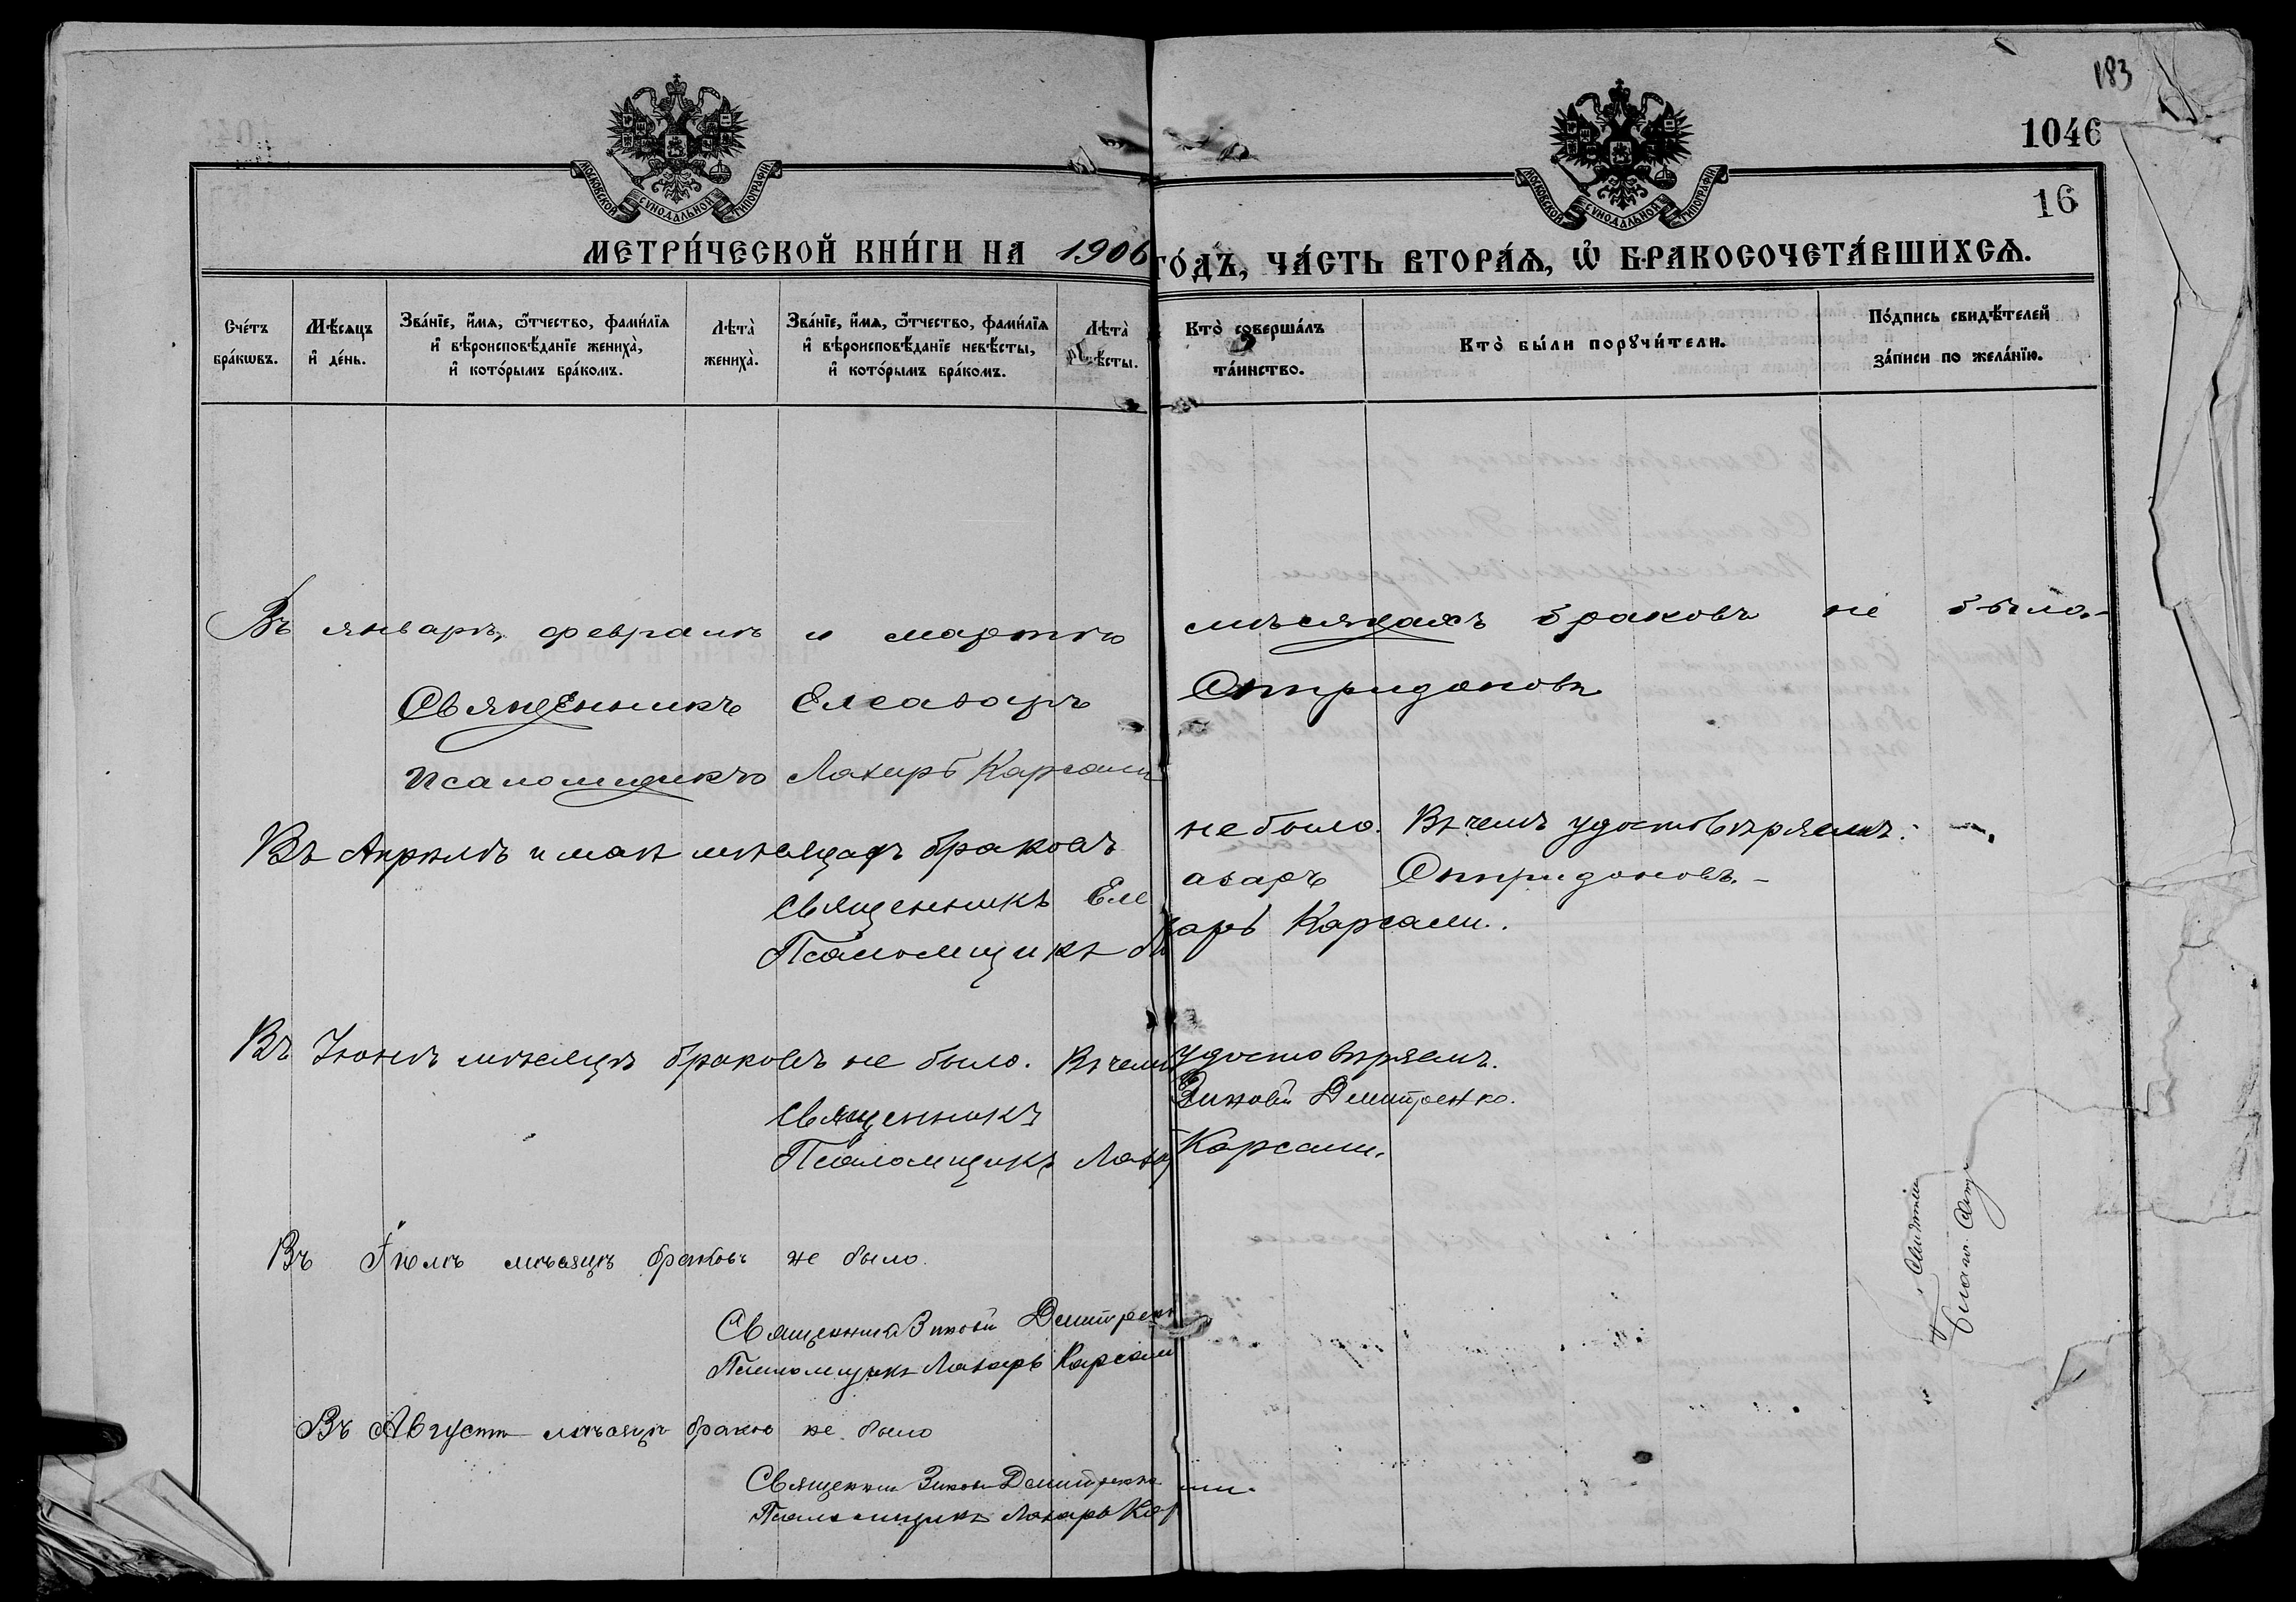 183
1046
16
МОСКОВСКОЙ СѴНОДАЛЬНОЙ ТИПОГРАФІИ
МОСКОВСКОЙ СѴНОДАЛЬНОЙ ТИПОГРАФІИ
МЕТРИ́ЧЕСКОЙ КНИ́ГИ НА 1906 ГО́ДЪ, ЧА́СТЬ ВТОРА́Ѧ, Ѡ҆ БРАКОСОЧЕТА́ВШИХСѦ.
Сче́тъ бра́кѡвъ.
Мѣ́сяцъ и҆ де́нь.
Зва́нїе, и҆́мѧ, ѻ҆́тчество, фами́лїѧ и҆ вѣроисповѣ́данїе жениха̀, и҆ кото́рымъ бра́комъ.
Лѣта̀ жениха̀.
Зва́нїе, и҆́мѧ, ѻ҆́тчество, фами́лїѧ и҆ вѣроисповѣ́данїе невѣ́сты, и҆ кото́рымъ бра́комъ.
Лѣта̀ невѣ́сты.
Кто̀ соверша́лъ та́инство.
Кто̀ бы́ли порꙋчи́тели.
По́дпись свидѣ́телей за́писи по жела́нїю.
Въ январѣ, февралѣ и мартѣ мѣсяцахъ браковъ не было.
Священникъ Елеазаръ Спиридоновъ
Псаломщикъ Лазарь Карсами
Въ Апрѣлѣ и маѣ мѣсяцахъ браковъ не было. Въ чемъ удостовѣряемъ:
Священникъ Елеазаръ Спиридоновъ.
Псаломщикъ Лазарь Карсами.
Въ Іюнѣ мѣсяцѣ браковъ не было. Въ чемъ удостовѣряемъ.
Священникъ Зиновій Дмитренко.
Псаломщикъ Лазарь Карсами.
Въ Іюлѣ мѣсяцѣ браковъ не было.
Священникъ Зиновій Дмитренко
Псаломщикъ Лазарь Карсами
Въ Августѣ мѣсяцѣ браковъ не было
Священникъ Зиновій Дмитренко
Псаломщикъ Лазарь Карсами.